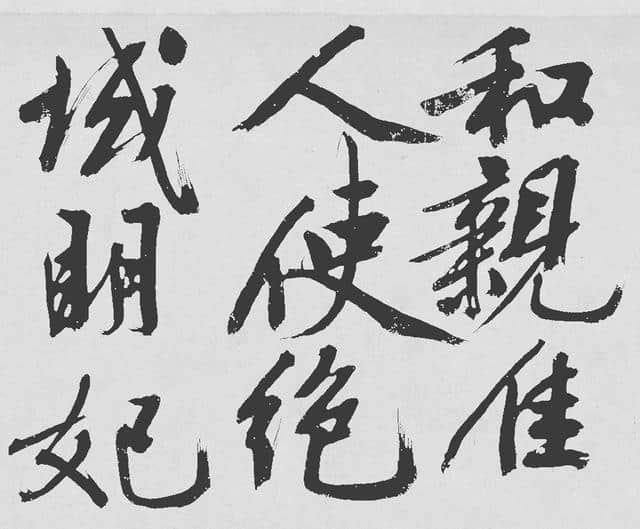 和親佳
人使绝
域明妃